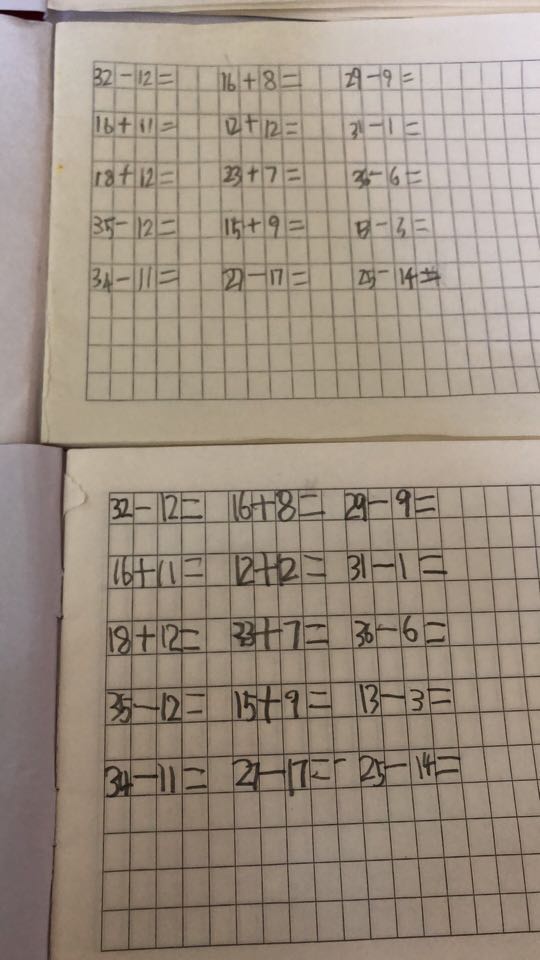 32-12= 16+8= 29-9=
16+11= 12+12= 31-1=
18+12= 23+7= 36-6=
35-12= 15+9= 13-3=
34-11= 27-17= 25-14=
32-12= 16+8= 29-9=
16+11= 12+12= 31-1=
18+12= 33+7= 36-6=
35-12= 15+9= 13-3=
34-11= 27-17= 25-14=